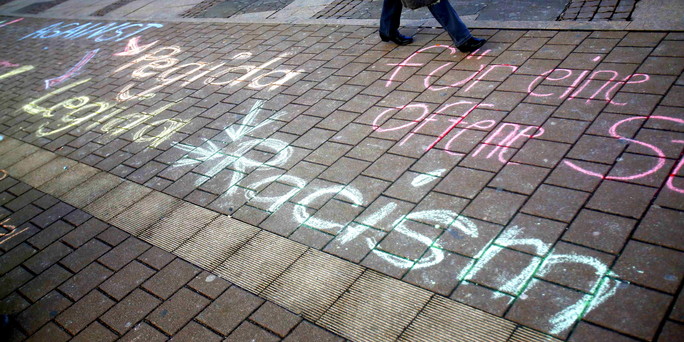 AGAINST
Pegida
Legida
Racism
Für eine
offene